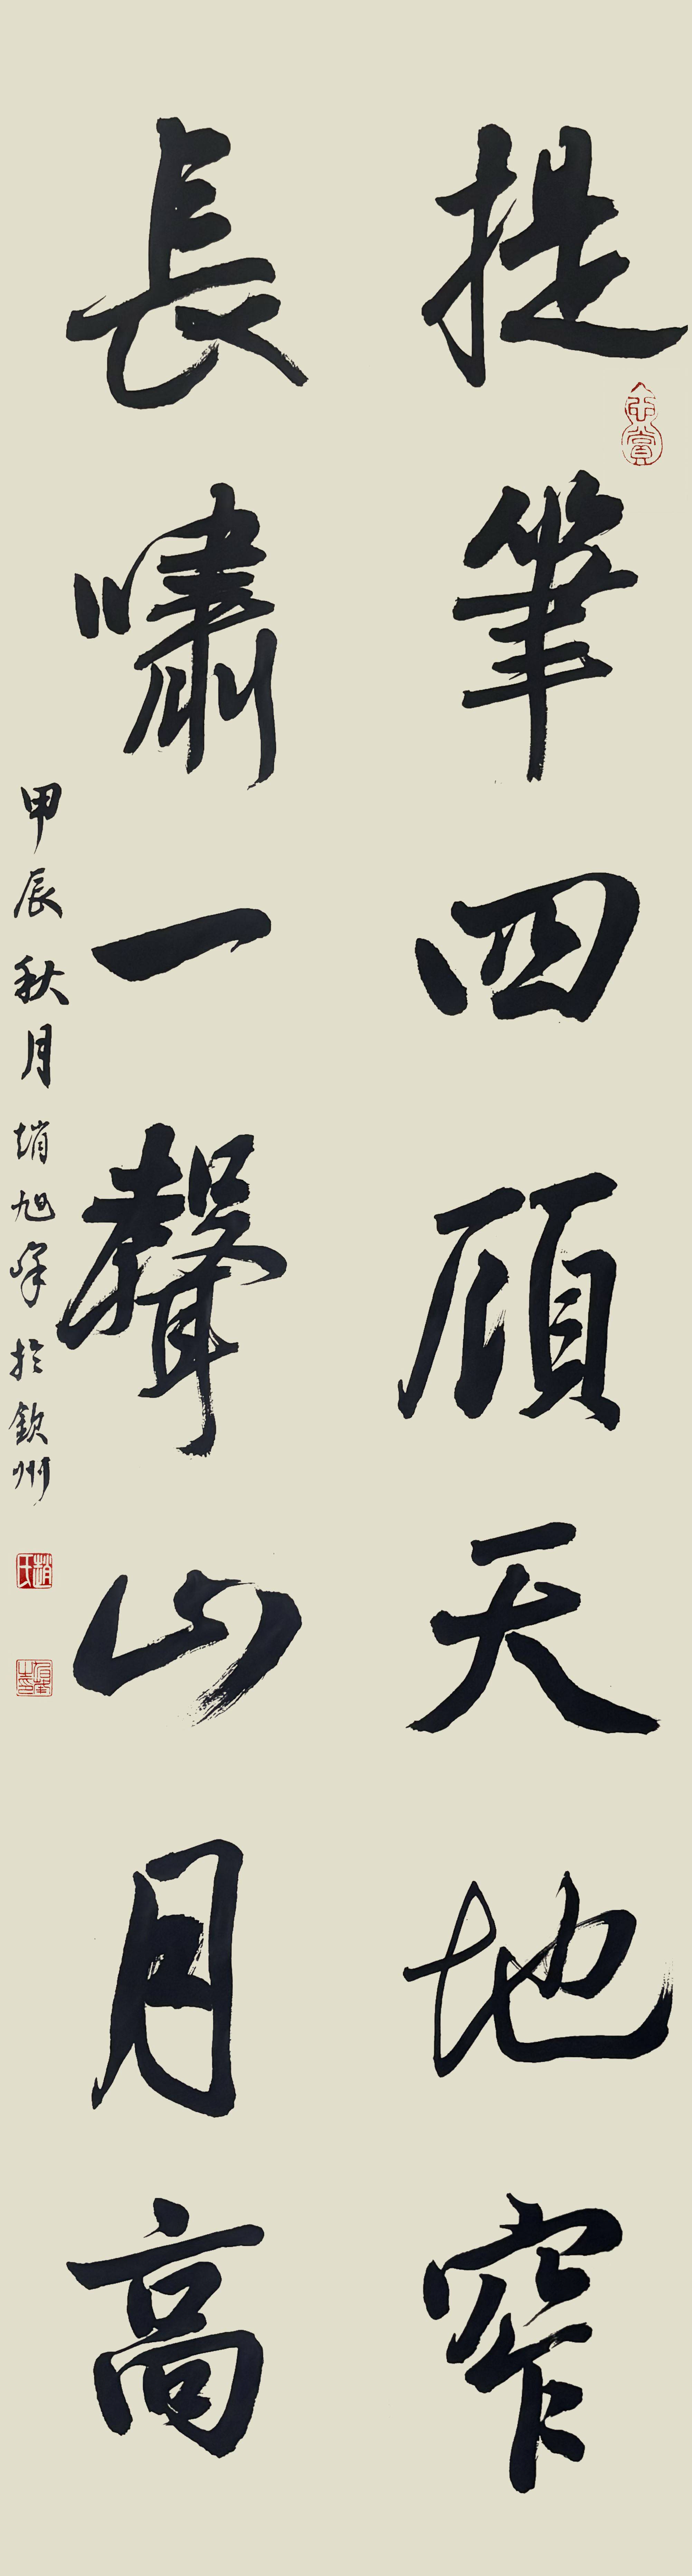 提筆四顧天地窄
長嘯一聲山月高
甲辰秋月趙旭峰於欽州
趙氏